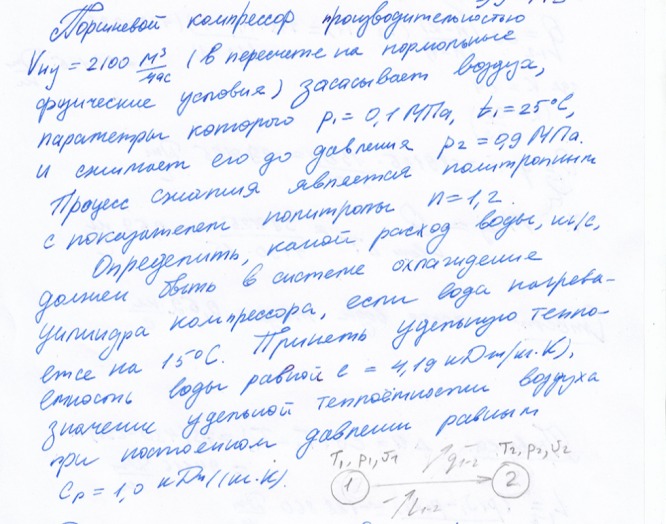 Поршневой компрессор производительностью
Vну = 2100 м³/час (в пересчете на нормальные
физические условия) засасывает воздух,
параметры которого p₁ = 0,1 МПа, t₁ = 25°C,
и сжимает его до давления p₂ = 0,9 МПа.
Процесс сжатия является политропным
с показателем политропы n = 1,2.
Определить, какой расход воды, кг/с,
должен быть в системе охлаждения
цилиндра компрессора, если вода нагрева-
ется на 15°C. Принять удельную тепло-
ёмкость воды равной c = 4,19 кДж/(кг·К),
значение удельной теплоёмкости воздуха
при постоянном давлении равным
Cp = 1,0 кДж/(кг·К).
T₁, p₁, v₁ q₁₋₂ T₂, p₂, v₂
1 2